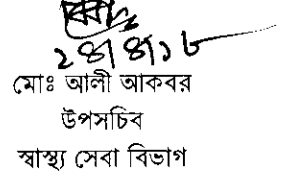 ২৪/৪/১৮
মোঃ আলী আকবর
উপসচিব
স্বাস্থ্য সেবা বিভাগ